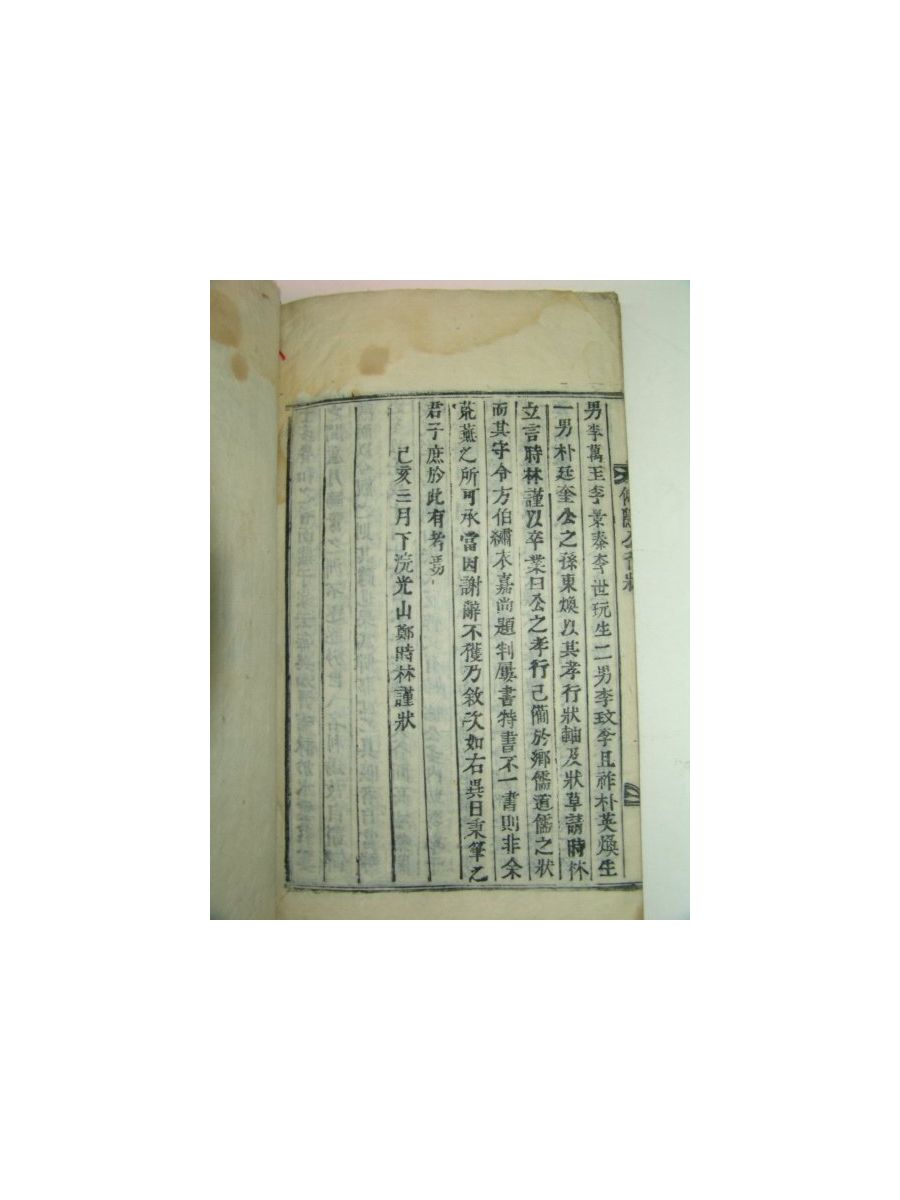 男李萬玉李秉泰李世玩生二男李玟李且祚朴英煥生
一男朴廷奎公之孫東煥以其孝行狀軸及狀草請時林
立言時林謹以卒業曰公之孝行已備於鄉儒道儒之狀
而其守令方伯繡衣嘉尚題判屢書特書不一書則非余
荒蕪之所可承當因謝辭不穫乃敘次如右異日秉筆之
君子庶於此有考焉
己亥三月下浣光山鄭時林謹狀